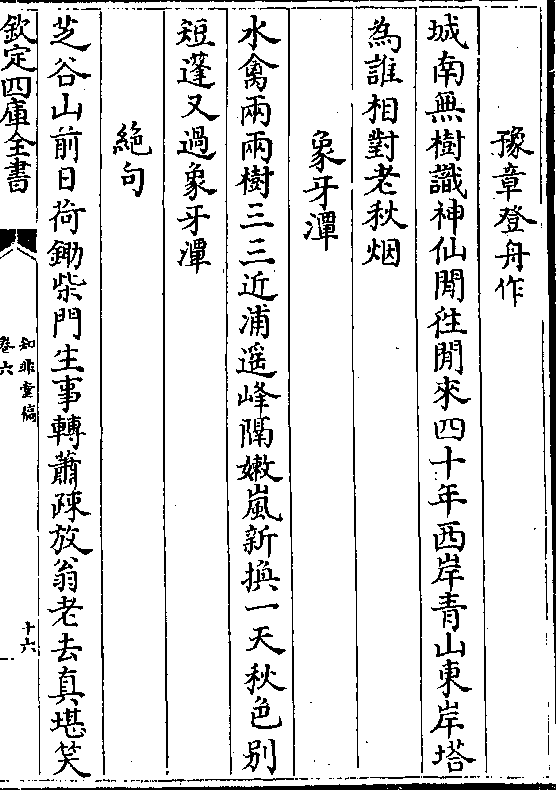 豫章登舟作
城南無樹識神仙閒徃閒來四十年西岸青山東岸塔
為誰相對老秋烟
象牙潭
水禽兩兩樹三三近浦遥峰隔嫩嵐新換一天秋色别
短蓬又過象牙潭
絶句
芝谷山前日荷鋤柴門生事轉蕭疎放翁老去真堪笑
欽定四庫全書
知非堂稿
卷六
十六